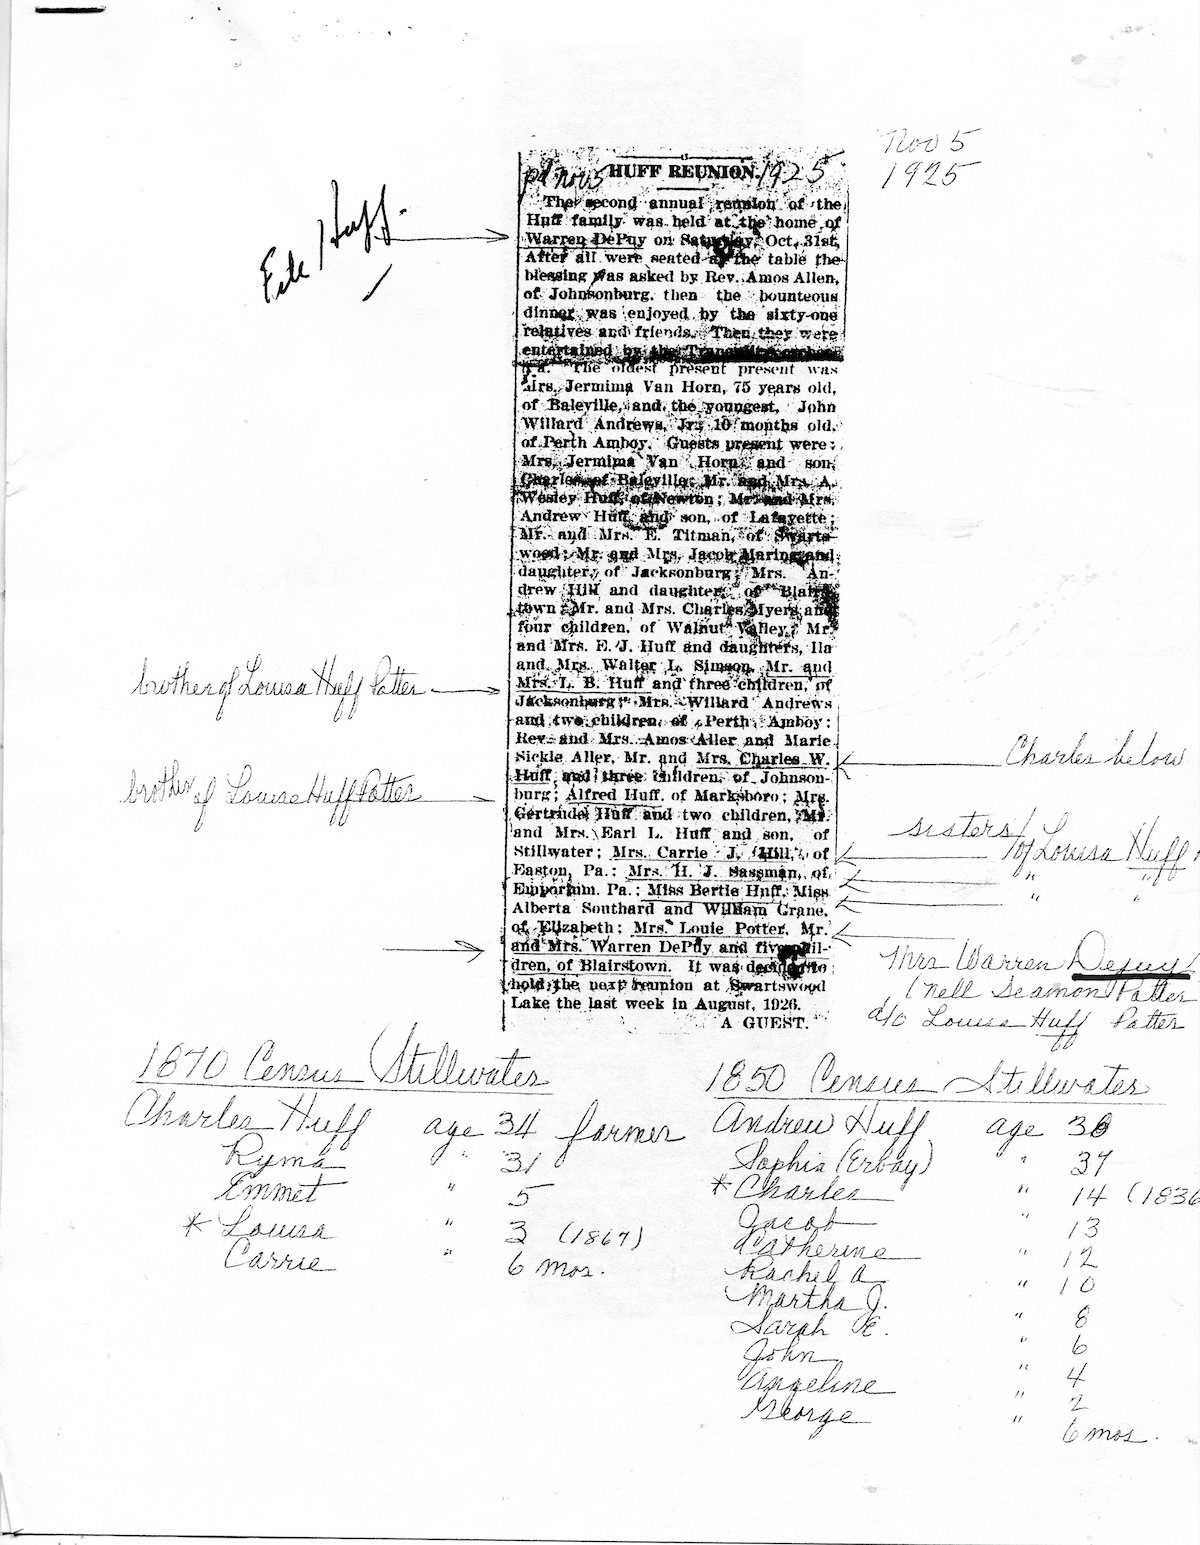 Nov 5
1925
File Huff.
pd nov 5 HUFF REUNION. 1925
The second annual reunion of the
Huff family was held at the home of
Warren DePuy on Saturday, Oct. 31st.
After all were seated at the table the
blessing was asked by Rev. Amos Allen,
of Johnsonburg, then the bounteous
dinner was enjoyed by the sixty-one
relatives and friends. Then they were
entertained by the
tra. The oldest present present was
Mrs. Jermima Van Horn, 75 years old,
of Baleville, and the youngest, John
Willard Andrews, Jr., 10 months old,
of Perth Amboy. Guests present were:
Mrs. Jermima Van Horn and son,
Charles of Baleville; Mr. and Mrs. A.
Wesley Huff, of Newton; Mr. and Mrs.
Andrew Huff and son, of Lafayette;
Mr. and Mrs. E. Titman, of Swarts-
wood; Mr. and Mrs. Jacob Maring and
daughter, of Jacksonburg; Mrs. An-
drew Hill and daughter, of Blairs-
town; Mr. and Mrs. Charles Myers and
four children, of Walnut Valley; Mr.
and Mrs. E. J. Huff and daughters, Ila
and Mrs. Walter L. Simson, Mr. and
Mrs. L. B. Huff and three children, of
Jacksonburg; Mrs. Willard Andrews
and two children, of Perth Amboy;
Rev. and Mrs. Amos Aller and Marie
Sickle Aller, Mr. and Mrs. Charles W.
Huff and three children, of Johnson-
burg; Alfred Huff, of Marksboro; Mrs.
Gertrude Huff and two children, Mr.
and Mrs. Earl L. Huff and son, of
Stillwater; Mrs. Carrie J. Hill, of
Easton, Pa.; Mrs. H. J. Sassman, of
Emporium, Pa.; Miss Bertie Huff, Miss
Alberta Southard and William Crane,
of Elizabeth; Mrs. Louie Potter, Mr.
and Mrs. Warren DePuy and five chil-
dren, of Blairstown. It was decided to
hold the next reunion at Swartswood
Lake the last week in August, 1926.
A GUEST.
brother of Louisa Huff Potter
brother of Louise Huff Potter
Charles below
sisters
of Louisa Huff
" "
" "
Mrs Warren Depuy
(nell Seamon Potter
d/o Louisa Huff Potter
1870 Census Stillwater
Charles Huff age 34 farmer
Ryma " 31
Emmet " 5
* Louisa " 3 (1867)
Carrie " 6 mos.
1850 Census Stillwater
Andrew Huff age 38
Sophia (Ervay) " 37
* Charles " 14 (1836
Jacob " 13
Catherine " 12
Rachel A. " 10
Martha J. " 8
Sarah E. " 6
John " 4
Angeline " 2
George " 6 mos.